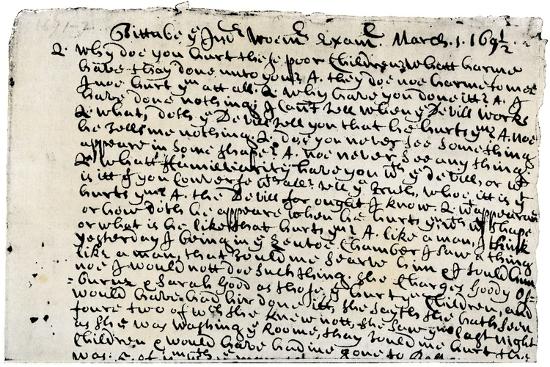 Tittube ye Indn Woemn Exam March. 1. 169½
Q. Why doe you hurt these poor Children? whatt harme
have thay done unto you? A. they doe noe harme to me
I noe hurt ym att all. Q. Why have you done itt? A. I
have done nothing; I Can't tell when ye Devill works
Q. what, doth ye Devill tell you that he hurts ym? A. noe
he tells me nothing. Q. doe you never See Something
appeare in Some shape? A. noe never See any thing.
Q. Whatt familiarity have you wth ye devill, or wt
is itt yt you Converse wthall? tell ye Truth, whoe itt is yt
hurts ym? A. the Devill for ought I know. Q. wt appearanc
or how doth he appeare when he hurts ym, wth wt shape
or what is he like that hurts ym? A. like a man, I think
yesterday I being in ye Lentoe Chamber I saw a thing
like a man, that tould me Searve him & I tould him
noe I would nott doe Such thing. She Charges Goody Os-
burne & Sarah Good as those yt hurt ye Children, and
would have had hir done itt, She Sayth she hath Seen
foure two of wch she knew nott, She Saw ym last night
as she was washing ye Roome, thay tould me hurt the
Children & would have had me gone to